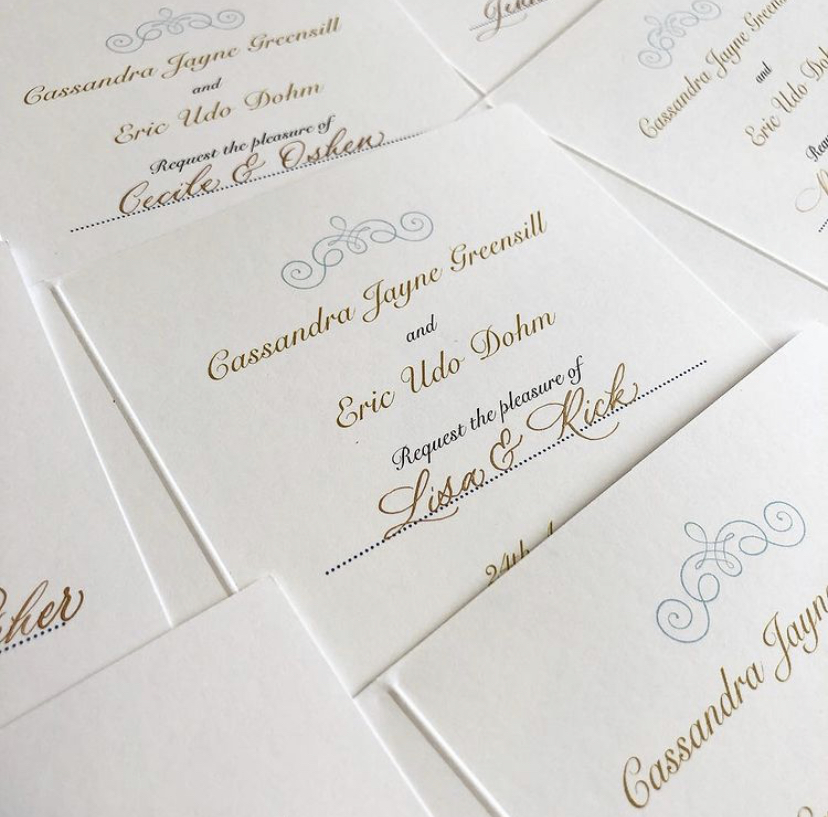 Cassandra Jayne Greensill
and
Eric Udo Dohm
Request the pleasure of
Cecile & Oshen
Cassandra Jayne Greensill
and
Eric Udo Dohm
Cassandra Jayne Greensill
and
Eric Udo Dohm
Request the pleasure of
Lisa & Rick
24th
Cassandra Jayne